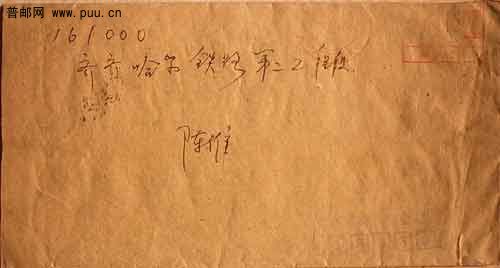 普邮网 www.puu.cn
161000
齐齐哈尔铁路第二工程段
陈